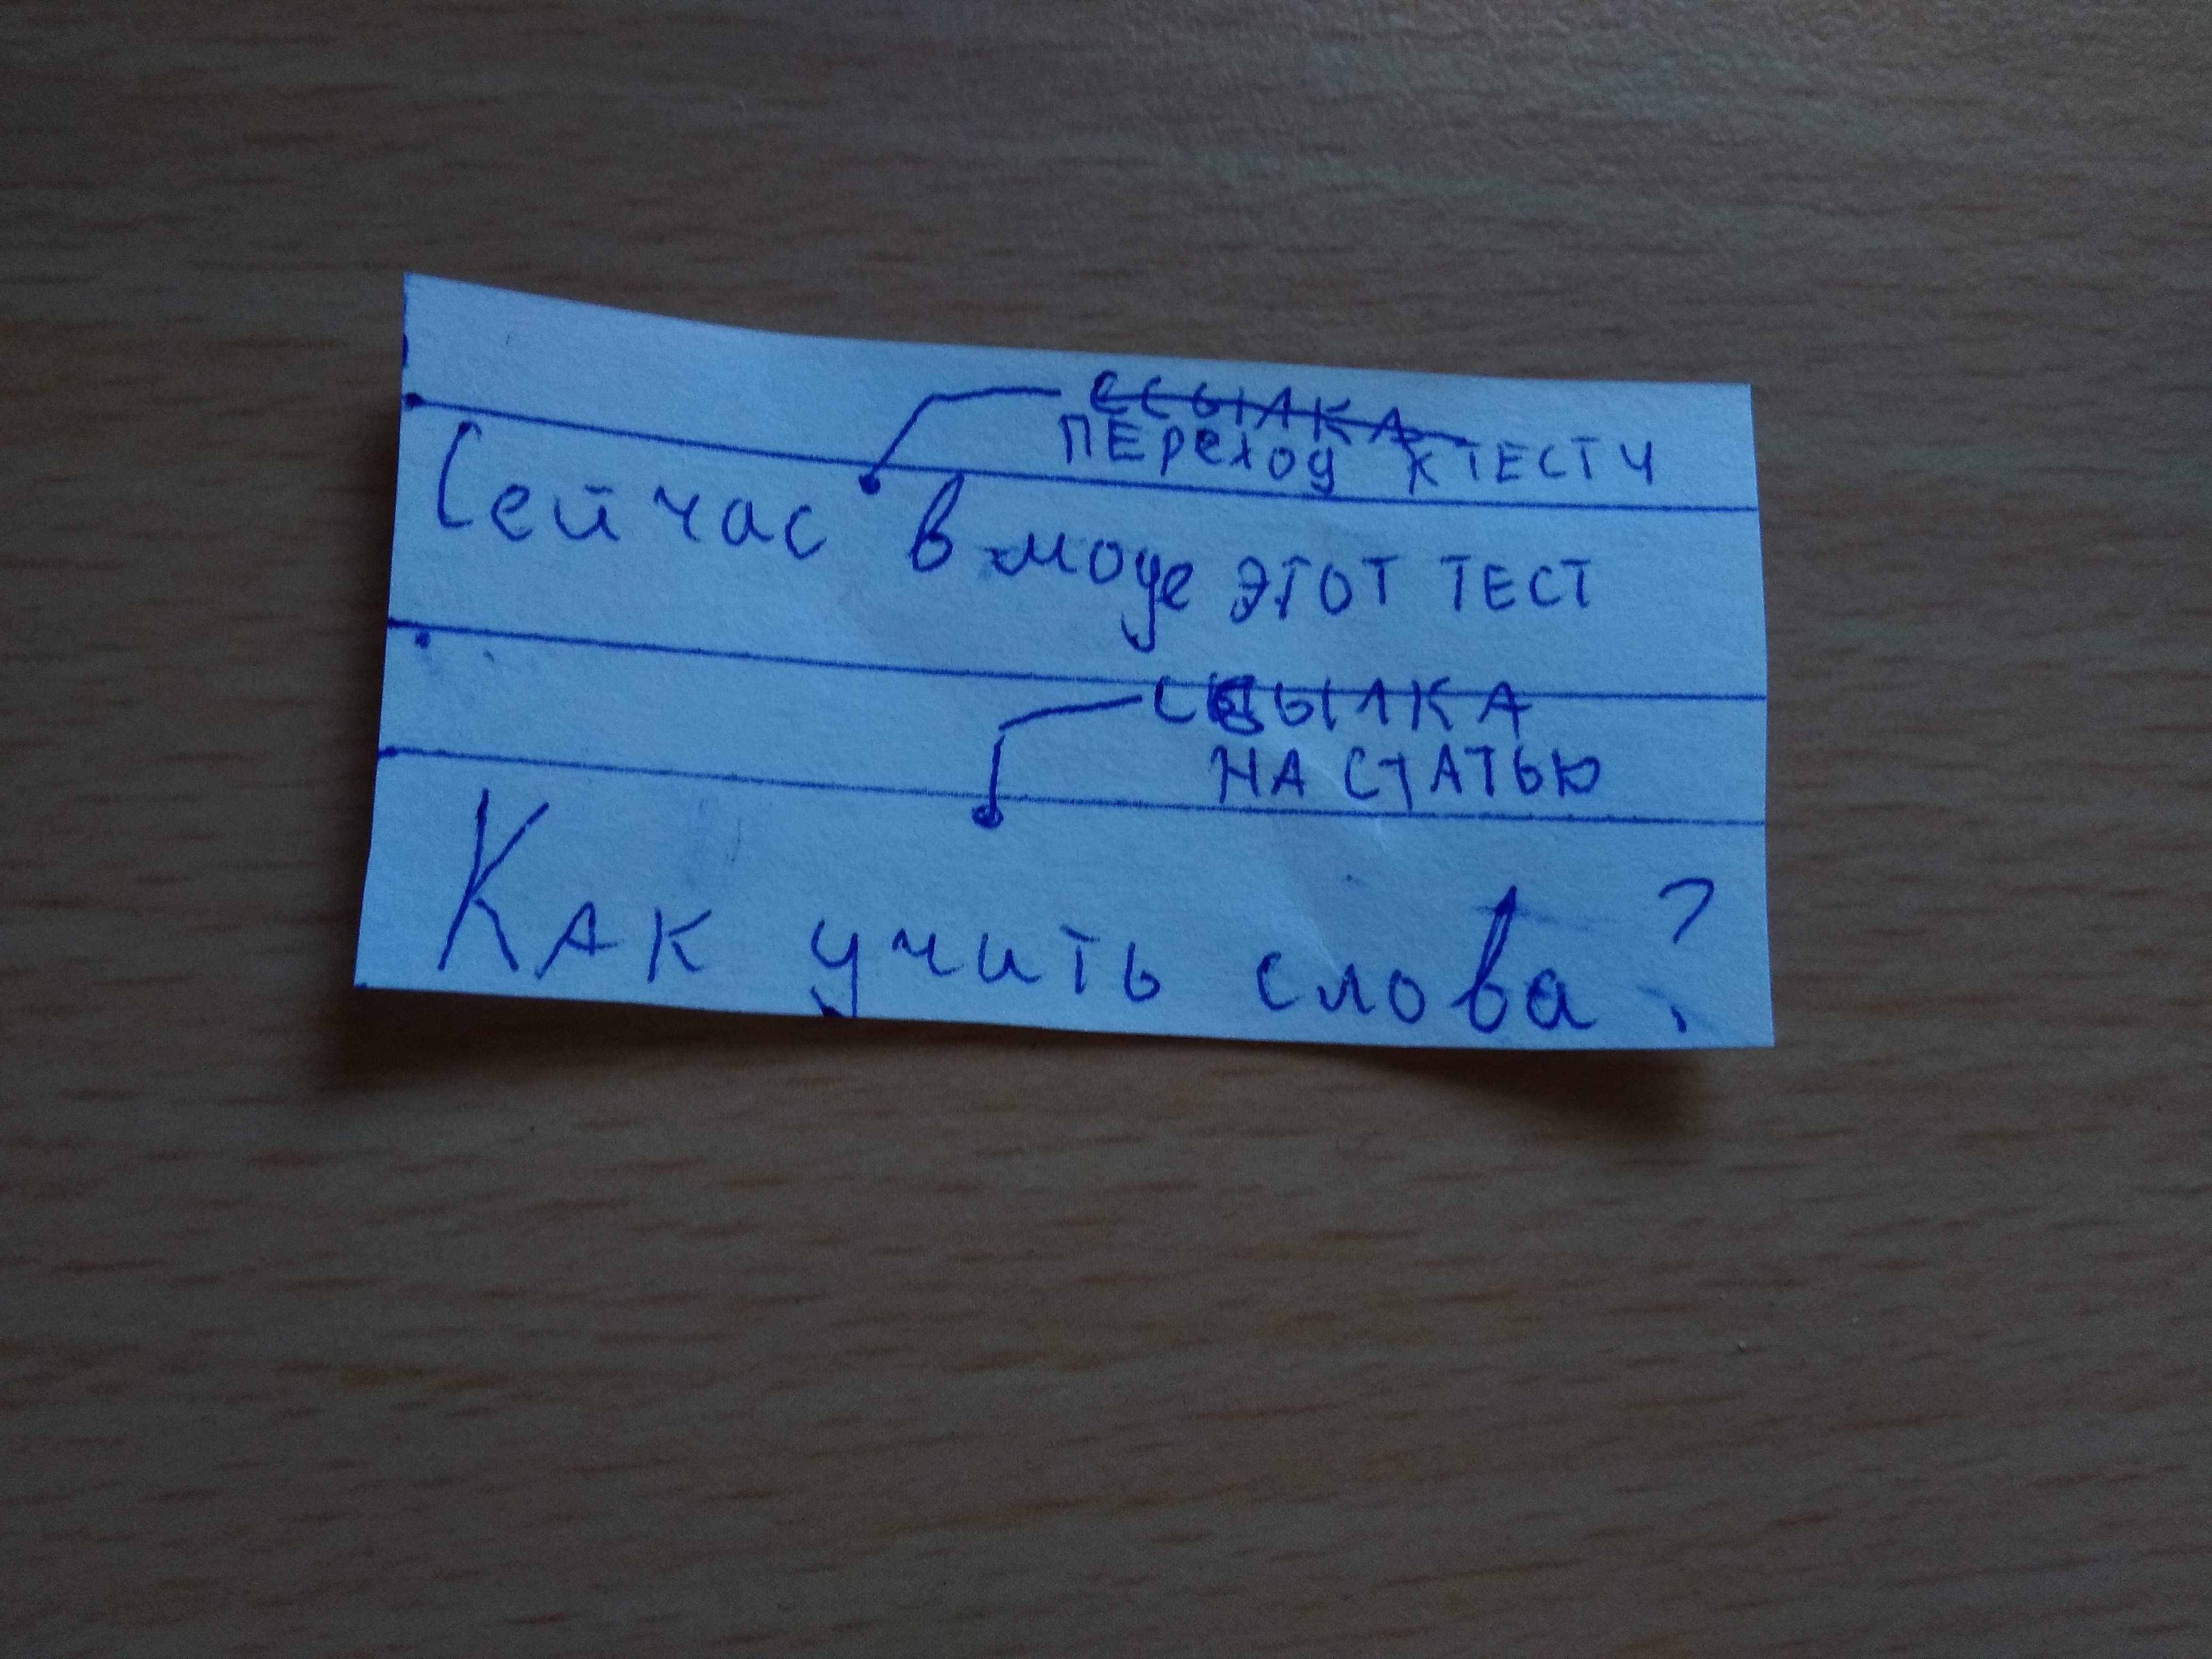 ССЫЛКА
ПЕРеход К ТЕСТУ
Сейчас в моде ЭТОТ ТЕСТ
ССЫЛКА
НА СТАТЬЮ
Как учить слова?